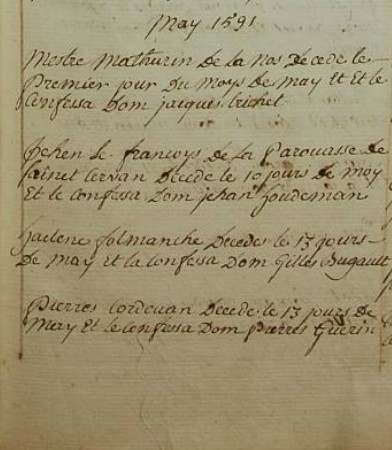 May 1591
Mestre Mathurin de la Nos decede le
Premier jour du Moys de May Et Et le
Confessa Dom jaiques trichet
Jehen le francoys de la Parouasse de
sainct servan decede le 10 jours de moy
Et le Confessa Dom jehan houdeman
haelene folmanche decedee le 13 jours
de May et la Confessa Dom Gilles Bugault
Pierres Cordeuan decede le 13 jours de
May Et le Confessa Dom Pierres Guerin